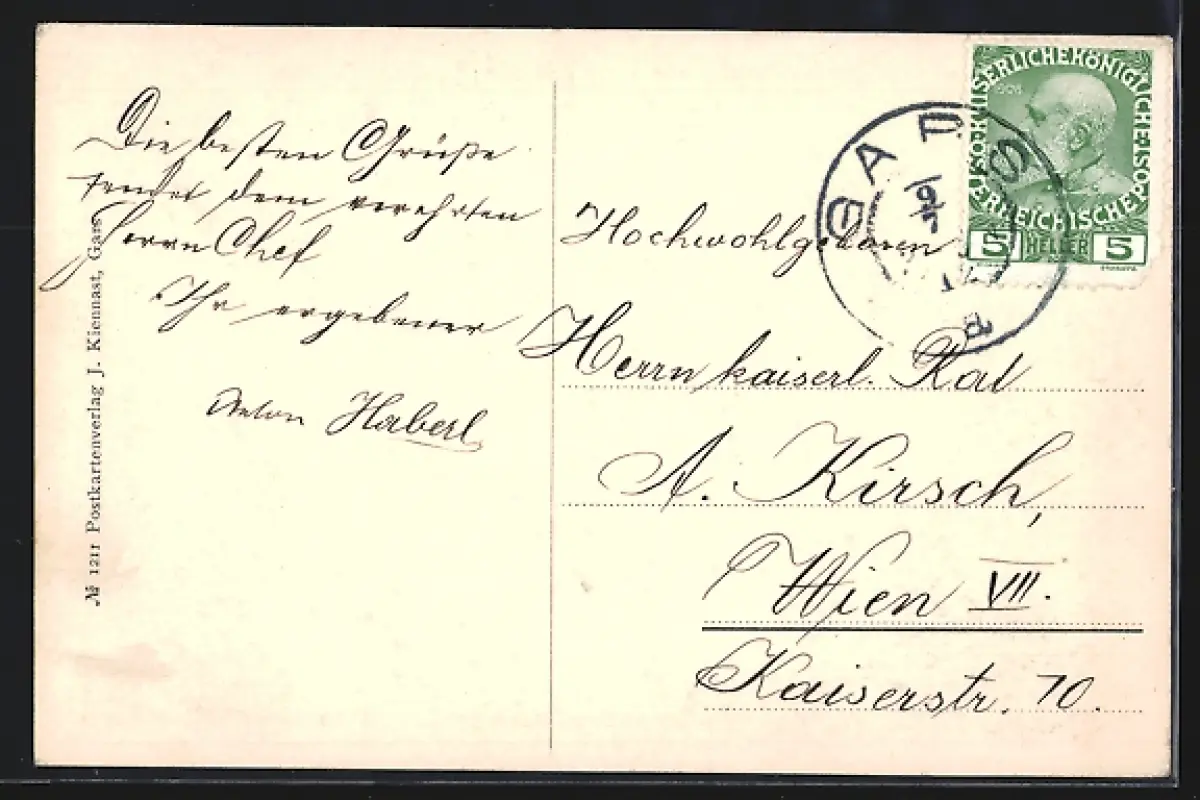 Die besten Grüße
sendet dem verehrten
Herrn Chef
Ihr ergebener
Anton Haberl
№ 1211 Postkartenverlag J. Kiennast, Gars
KAISERLICHE KÖNIGLICHE
ÖSTERREICHISCHE POST
1908
5 HELLER 5
GARS
Hochwohlgeboren
Herrn kaiserl. Rat
A. Kirsch,
Wien VII.
Kaiserstr. 70.